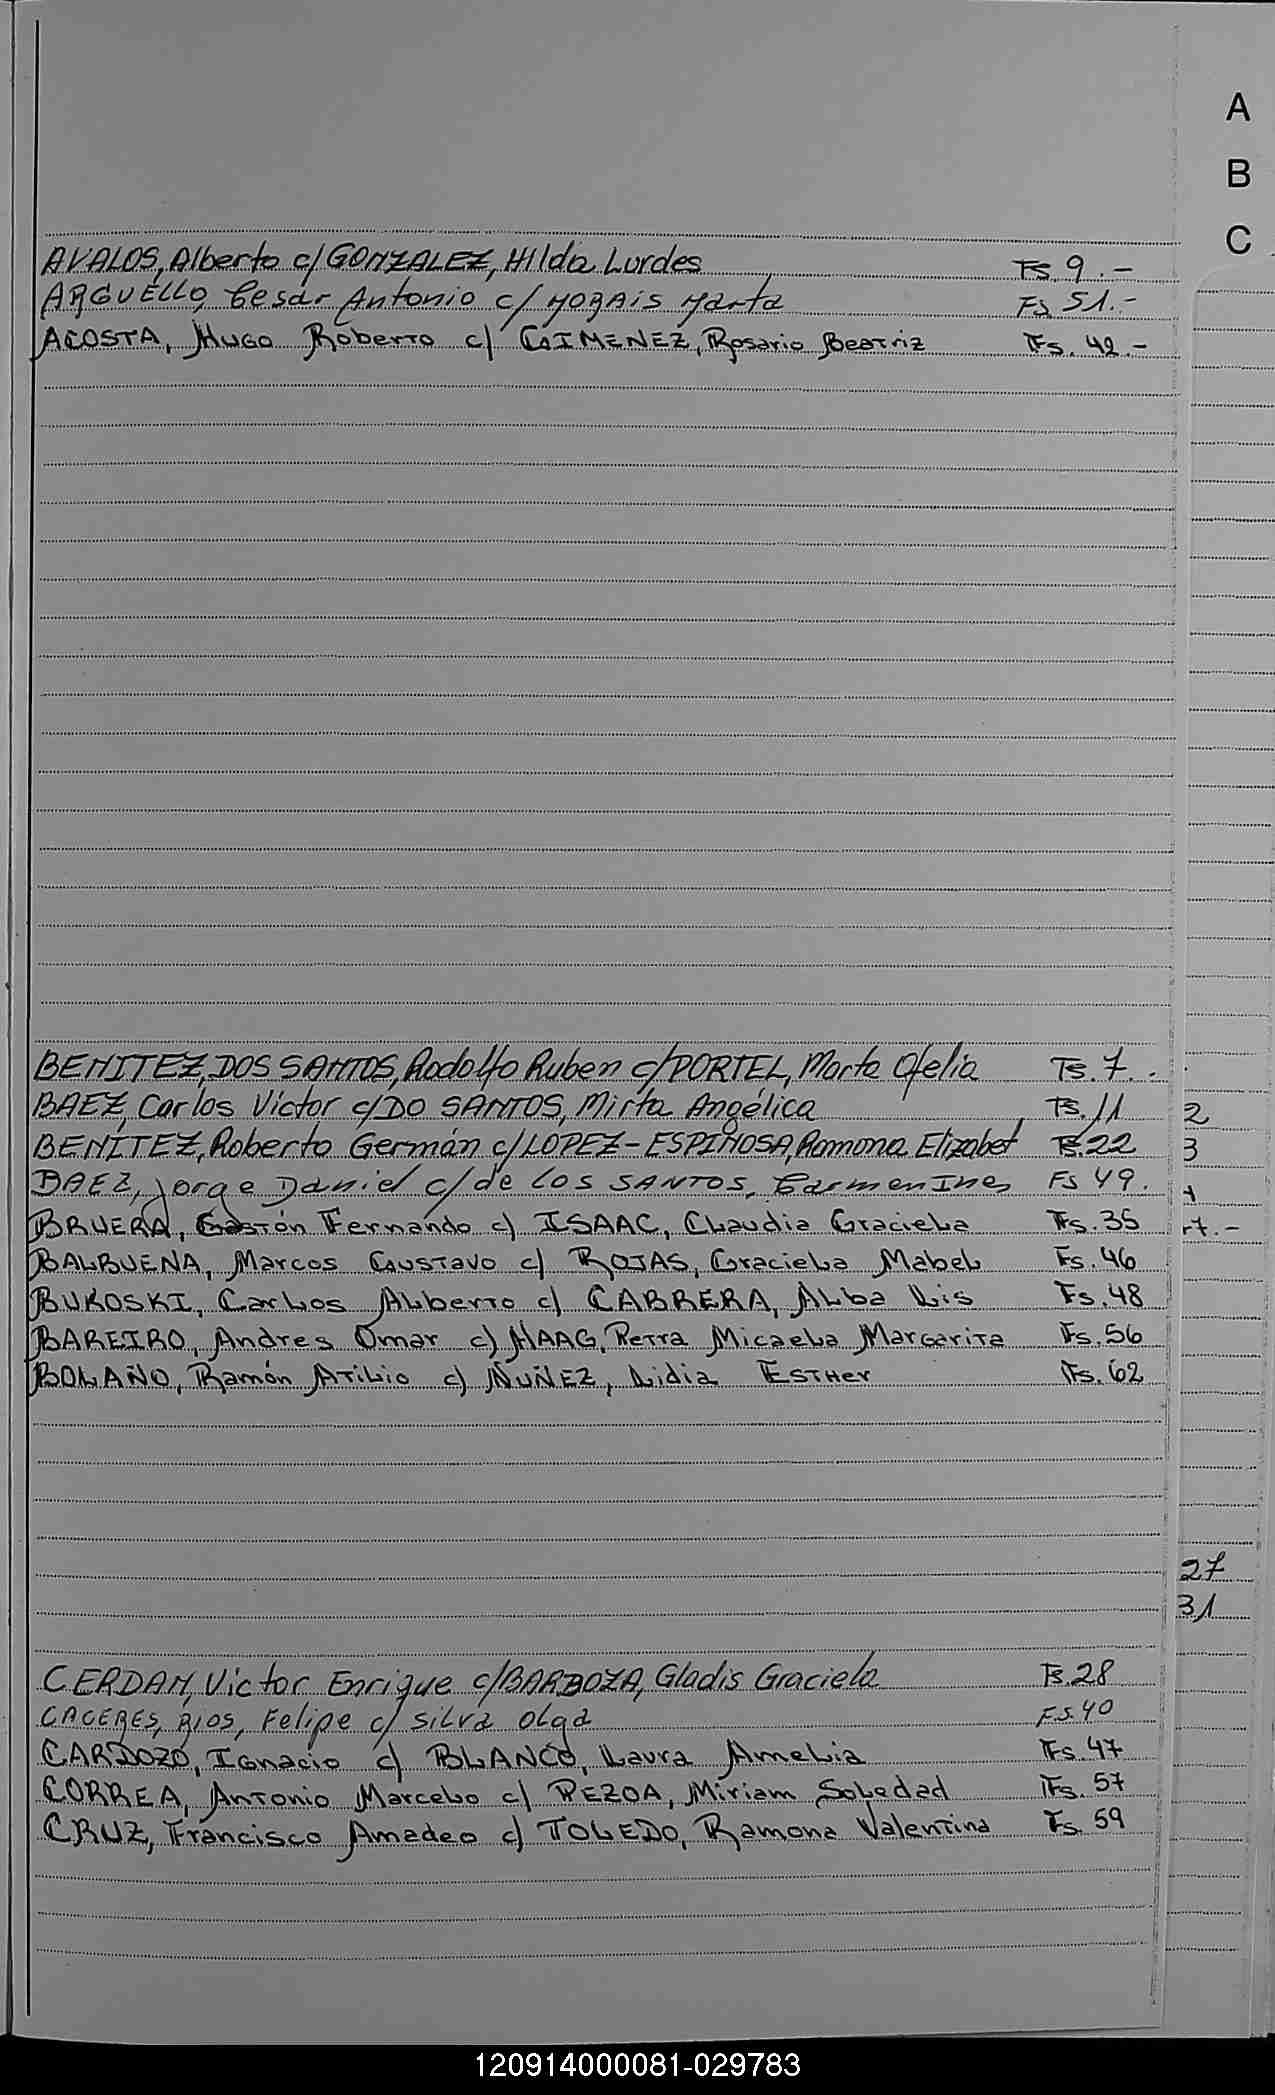 A
B
C
AVALOS, Alberto c/ GONZALEZ, Hilda Lurdes Fs. 9.-
ARGUELLO, Cesar Antonio c/ MORAIS Marta Fs 51.-
ACOSTA, Hugo Roberto c/ GIMENEZ, Rosario Beatriz Fs. 42.-
BENITEZ, DOS SANTOS, Rodolfo Ruben c/ PORTEL, Marta Ofelia Fs. 7..
BAEZ, Carlos Victor c/ DO SANTOS, Mirta Angélica Fs. 11
2
BENÍTEZ, Roberto Germán c/ LOPEZ-ESPINOSA, Ramona Elizabet Fs. 22
3
BAEZ, Jorge Daniel c/ de los SANTOS, Carmen Ines Fs 49.
BRUERA, Gastón Fernando c/ ISAAC, Claudia Graciela Fs. 35
BALBUENA, Marcos Gustavo c/ ROJAS, Graciela Mabel Fs. 46
BUKOSKI, Carlos Alberto c/ CABRERA, Alba Lis Fs. 48
BAREIRO, Andres Omar c/ HAAG, Petra Micaela Margarita Fs. 56
BOLAÑO, Ramón Atilio c/ ÑUÑEZ, Lidia Esther Fs. 62
27
31
CERDAN, Victor Enrique c/ BARBOZA, Gladis Graciela Fs. 28
CACERES, RIOS, Felipe c/ Silva Olga Fs. 40
CARDOZO, Ignacio c/ BLANCO, Laura Amelia Fs. 47
CORREA, Antonio Marcelo c/ PEZOA, Miriam Soledad Fs. 57
CRUZ, Francisco Amadeo c/ TOLEDO, Ramona Valentina Fs. 59
120914000081-029783